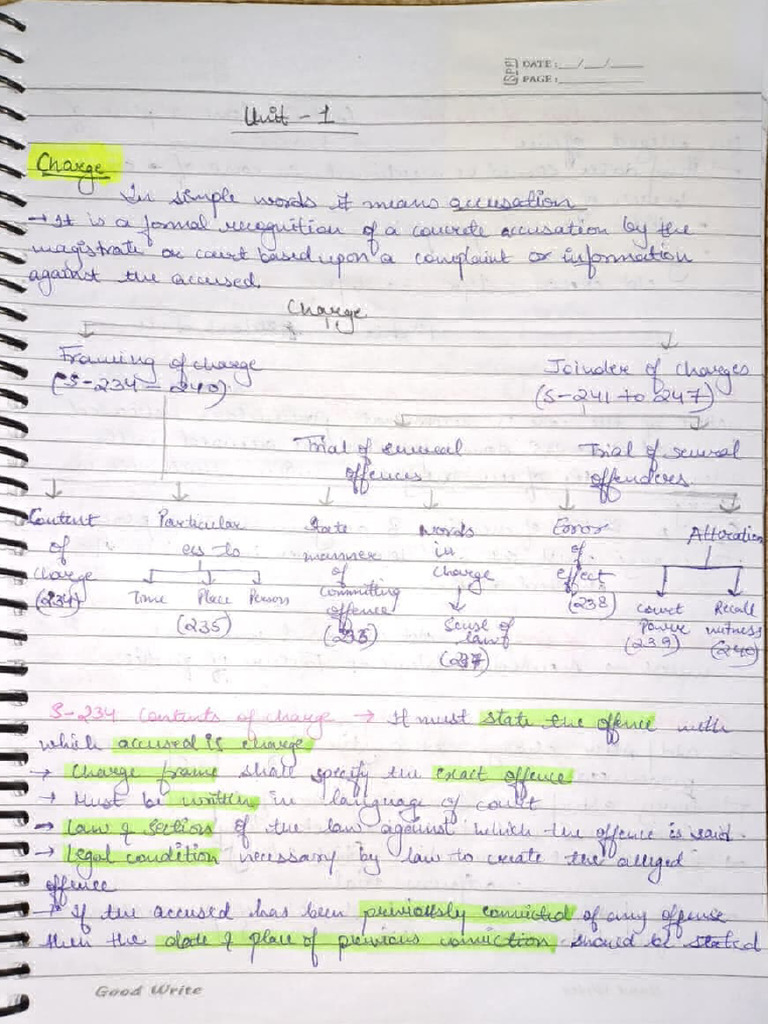 DATE: __/__/____
PAGE: ________
Unit - 1
Charge
In simple words it means accusation
→ It is a formal recognition of a concrete accusation by the
magistrate or court based upon a complaint or information
against the accused.
Charge
Framing of charge Joinder of charges
(S-234 - 240) (S-241 to 247)
Trial of several Trial of several
offences offenderes
Content Particular Date words Error Alteration
of es to manner in of
charge of charge effect
(234) Time Place Person Committing (238) Court Recall
offence Power witness
(235) (236) Sense of (239) (240)
law
(237)
S-234 Contents of charge → It must state the offence with
which accused is charge
→ Charge frame shall specify the exact offence
→ Must be written in language of court
→ Law & section of the law against which the offence is said.
→ Legal condition necessary by law to create the alleged
offence
→ If the accused has been previously convicted of any offense
then the date & place of previous conviction should be stated
Good Write